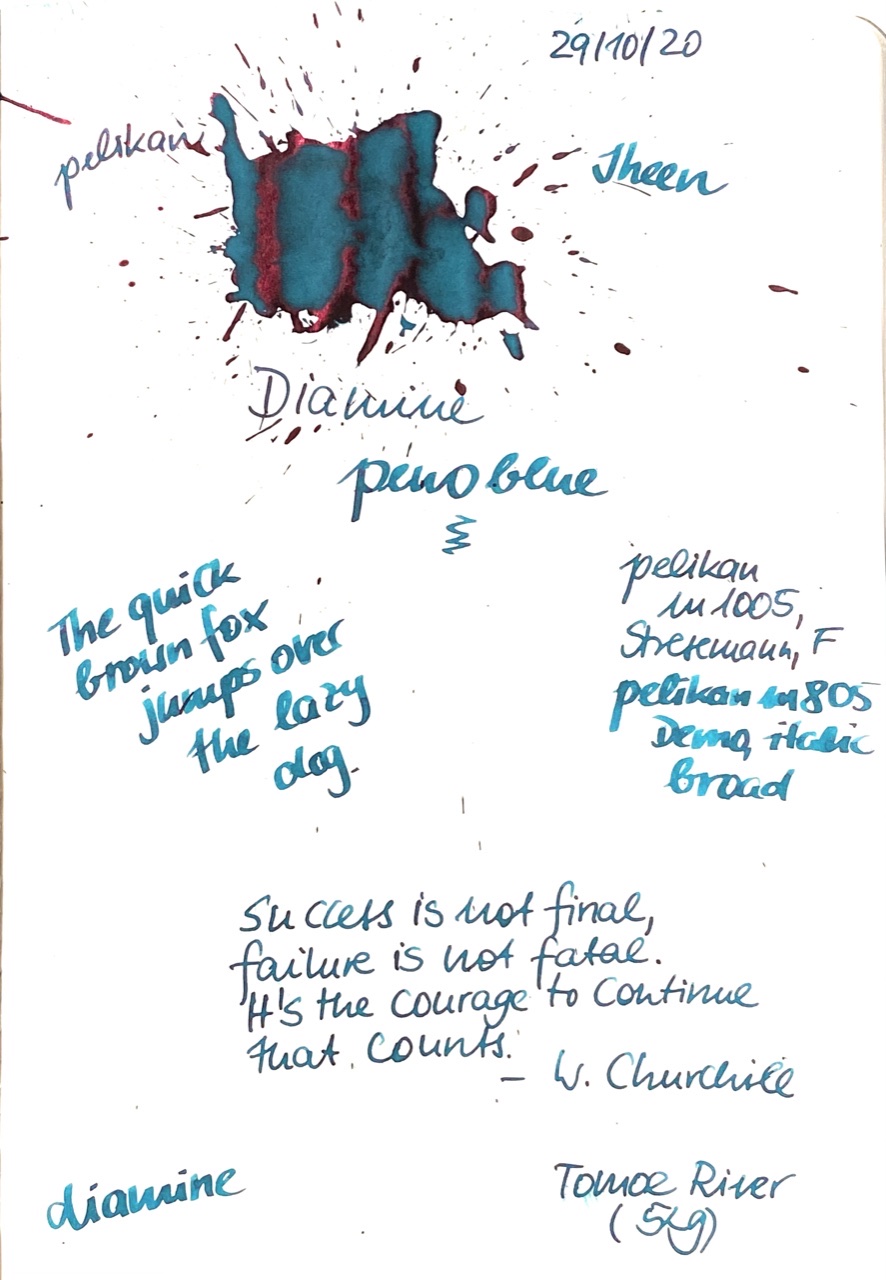 29/10/20
pelikan
Sheen
Diamine
peno blue
The quick
brown fox
jumps over
the lazy
dog.
pelikan
m1005,
Stresemann, F
pelikan m805
Demo, italic
broad
Success is not final,
failure is not fatal.
It's the courage to continue
that counts.
– W. Churchill
diamine
Tomoe River
(52g)